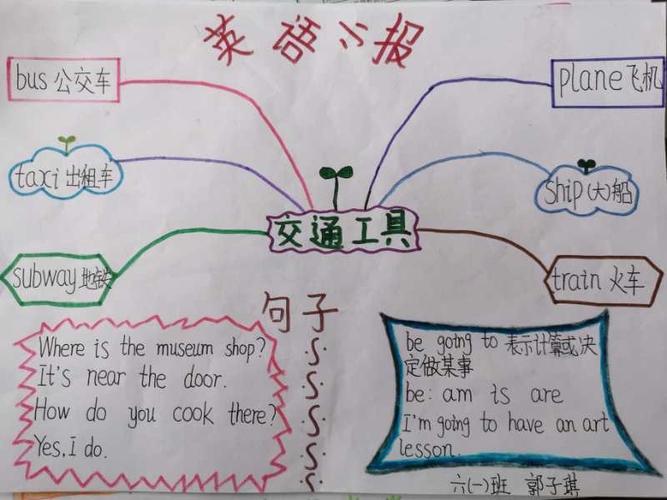 英语小报
bus 公交车
plane 飞机
taxi 出租车
ship (大) 船
交通工具
subway 地铁
train 火车
句子
Where is the museum shop?
It's near the door.
How do you cook there?
Yes, I do.
be going to 表示计算或决
定做某事
be: am is are
I'm going to have an art
lesson.
六(一)班 郭子琪